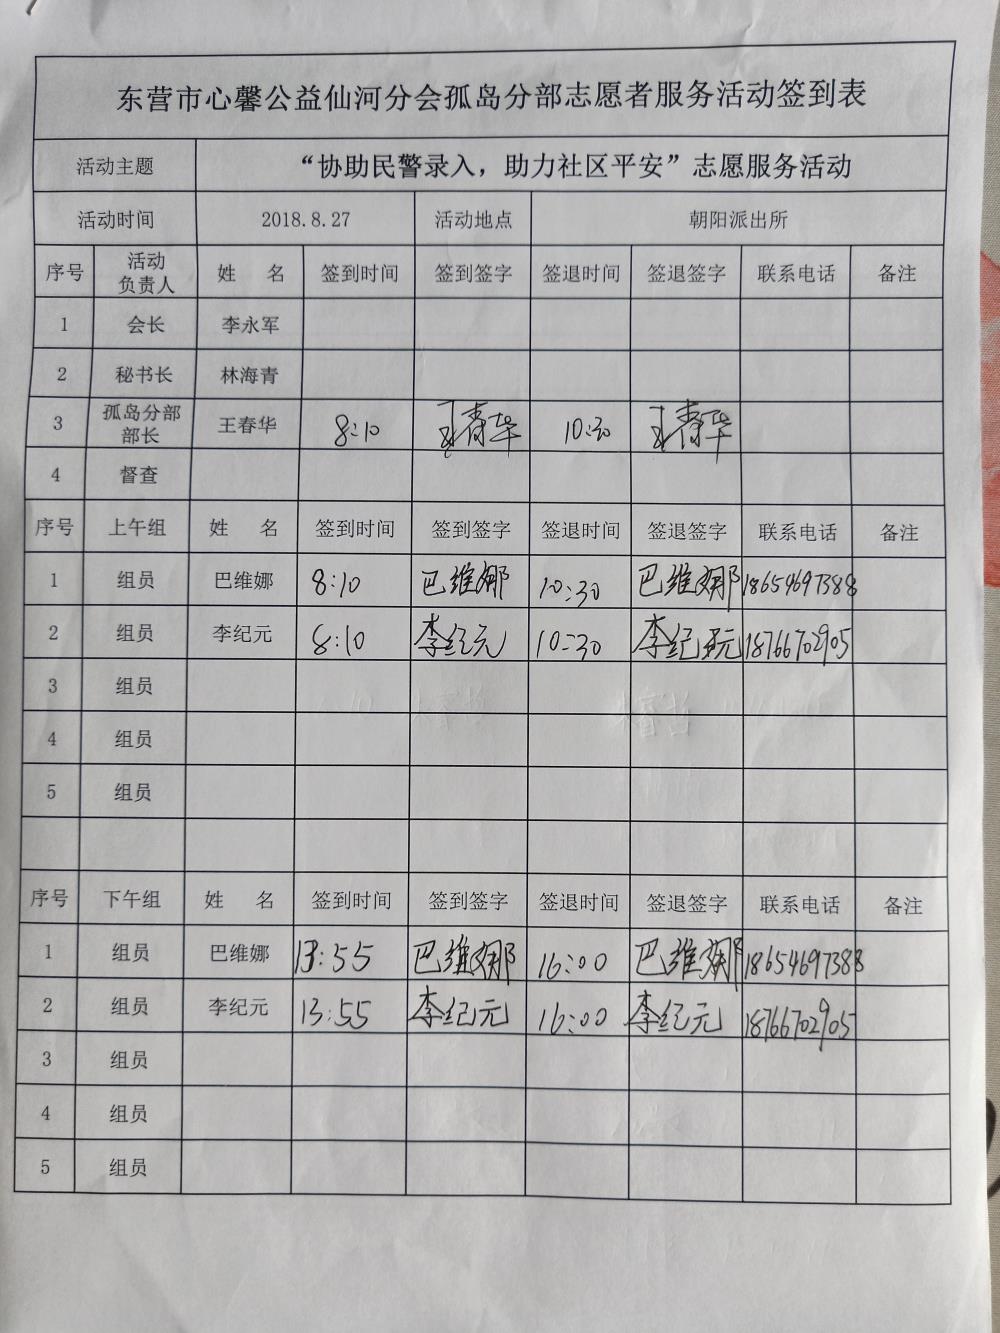 东营市心馨公益仙河分会孤岛分部志愿者服务活动签到表
活动主题 “协助民警录入，助力社区平安”志愿服务活动
活动时间 2018.8.27 活动地点 朝阳派出所
序号 活动负责人 姓 名 签到时间 签到签字 签退时间 签退签字 联系电话 备注
1 会长 李永军
2 秘书长 林海青
3 孤岛分部部长 王春华 8:10 王春华 10:30 王春华
4 督查
序号 上午组 姓 名 签到时间 签到签字 签退时间 签退签字 联系电话 备注
1 组员 巴维娜 8:10 巴维娜 10:30 巴维娜 18654697388
2 组员 李纪元 8:10 李纪元 10:30 李纪元 18766702905
3 组员
4 组员
5 组员
序号 下午组 姓 名 签到时间 签到签字 签退时间 签退签字 联系电话 备注
1 组员 巴维娜 13:55 巴维娜 16:00 巴维娜 18654697388
2 组员 李纪元 13:55 李纪元 16:00 李纪元 18766702905
3 组员
4 组员
5 组员